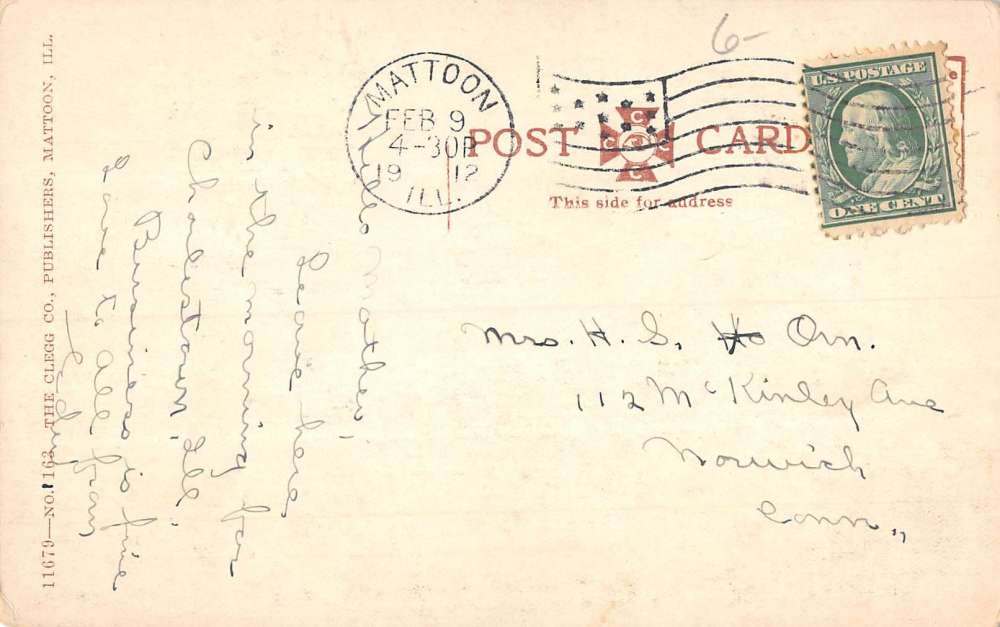 6-
MATTOON
FEB 9
4-30P
19 12
ILL.
U.S. POSTAGE
ONE CENT
POST CARD
C C C C
This side for address
11679—NO. 163, THE CLEGG CO., PUBLISHERS, MATTOON, ILL.
Hello Mother,
Leave here
in the morning for
Charlestown, Ill.
Business is fine
Love to all from
Mrs. H. S. Orn.
112 McKinley Ave
Norwich
Conn.,